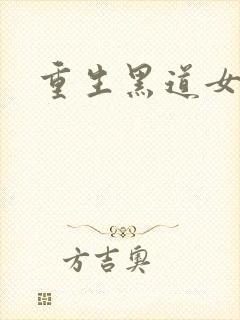 重生黑道女
方吉奥